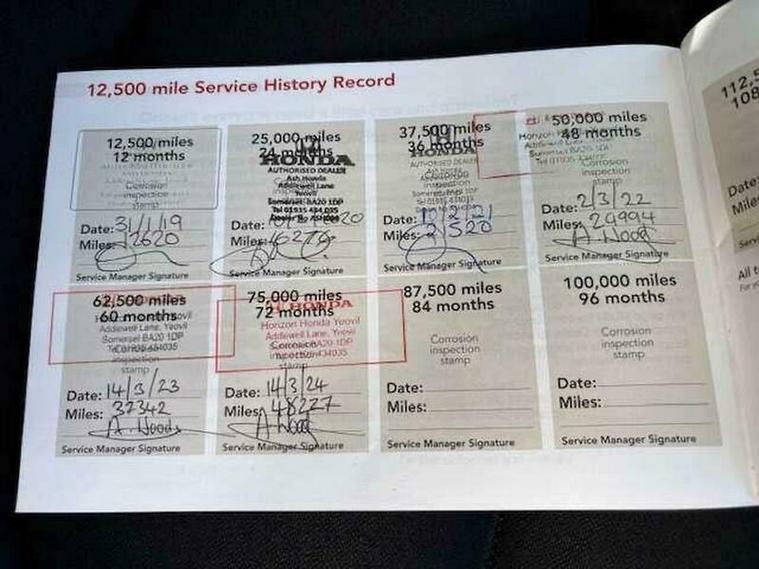 12,500 mile Service History Record
12,500 miles
12 months
Corrosion
inspection
stamp
Date: 31/1/19
Miles: 12620
Service Manager Signature
25,000 miles
24 months
HONDA
AUTHORISED DEALER
Ash Honda
Addlewell Lane
Yeovil
Somerset BA20 1DP
Tel 01935 434035
Date:
Miles: 16276
Service Manager Signature
37,500 miles
36 months
HONDA
AUTHORISED DEALER
Ash Honda
inspection
Date: 10/2/21
Miles: 21520
Service Manager Signature
50,000 miles
48 months
Corrosion
inspection
stamp
Date: 2/3/22
Miles: 29994
A. Wood
Service Manager Signature
62,500 miles
60 months
Addlewell Lane, Yeovil
Somerset BA20 1DP
Tel 01935 434035
inspection
stamp
Date: 14/3/23
Miles: 37342
A. Wood
Service Manager Signature
75,000 miles
72 months
HONDA
Horizon Honda Yeovil
Addlewell Lane, Yeovil
Somerset BA20 1DP
stamp
Date: 14/3/24
Miles: 48227
A. Wood
Service Manager Signature
87,500 miles
84 months
Corrosion
inspection
stamp
Date:
Miles:
Service Manager Signature
100,000 miles
96 months
Corrosion
inspection
stamp
Date:
Miles:
Service Manager Signature
112,5
108
Date:
Miles